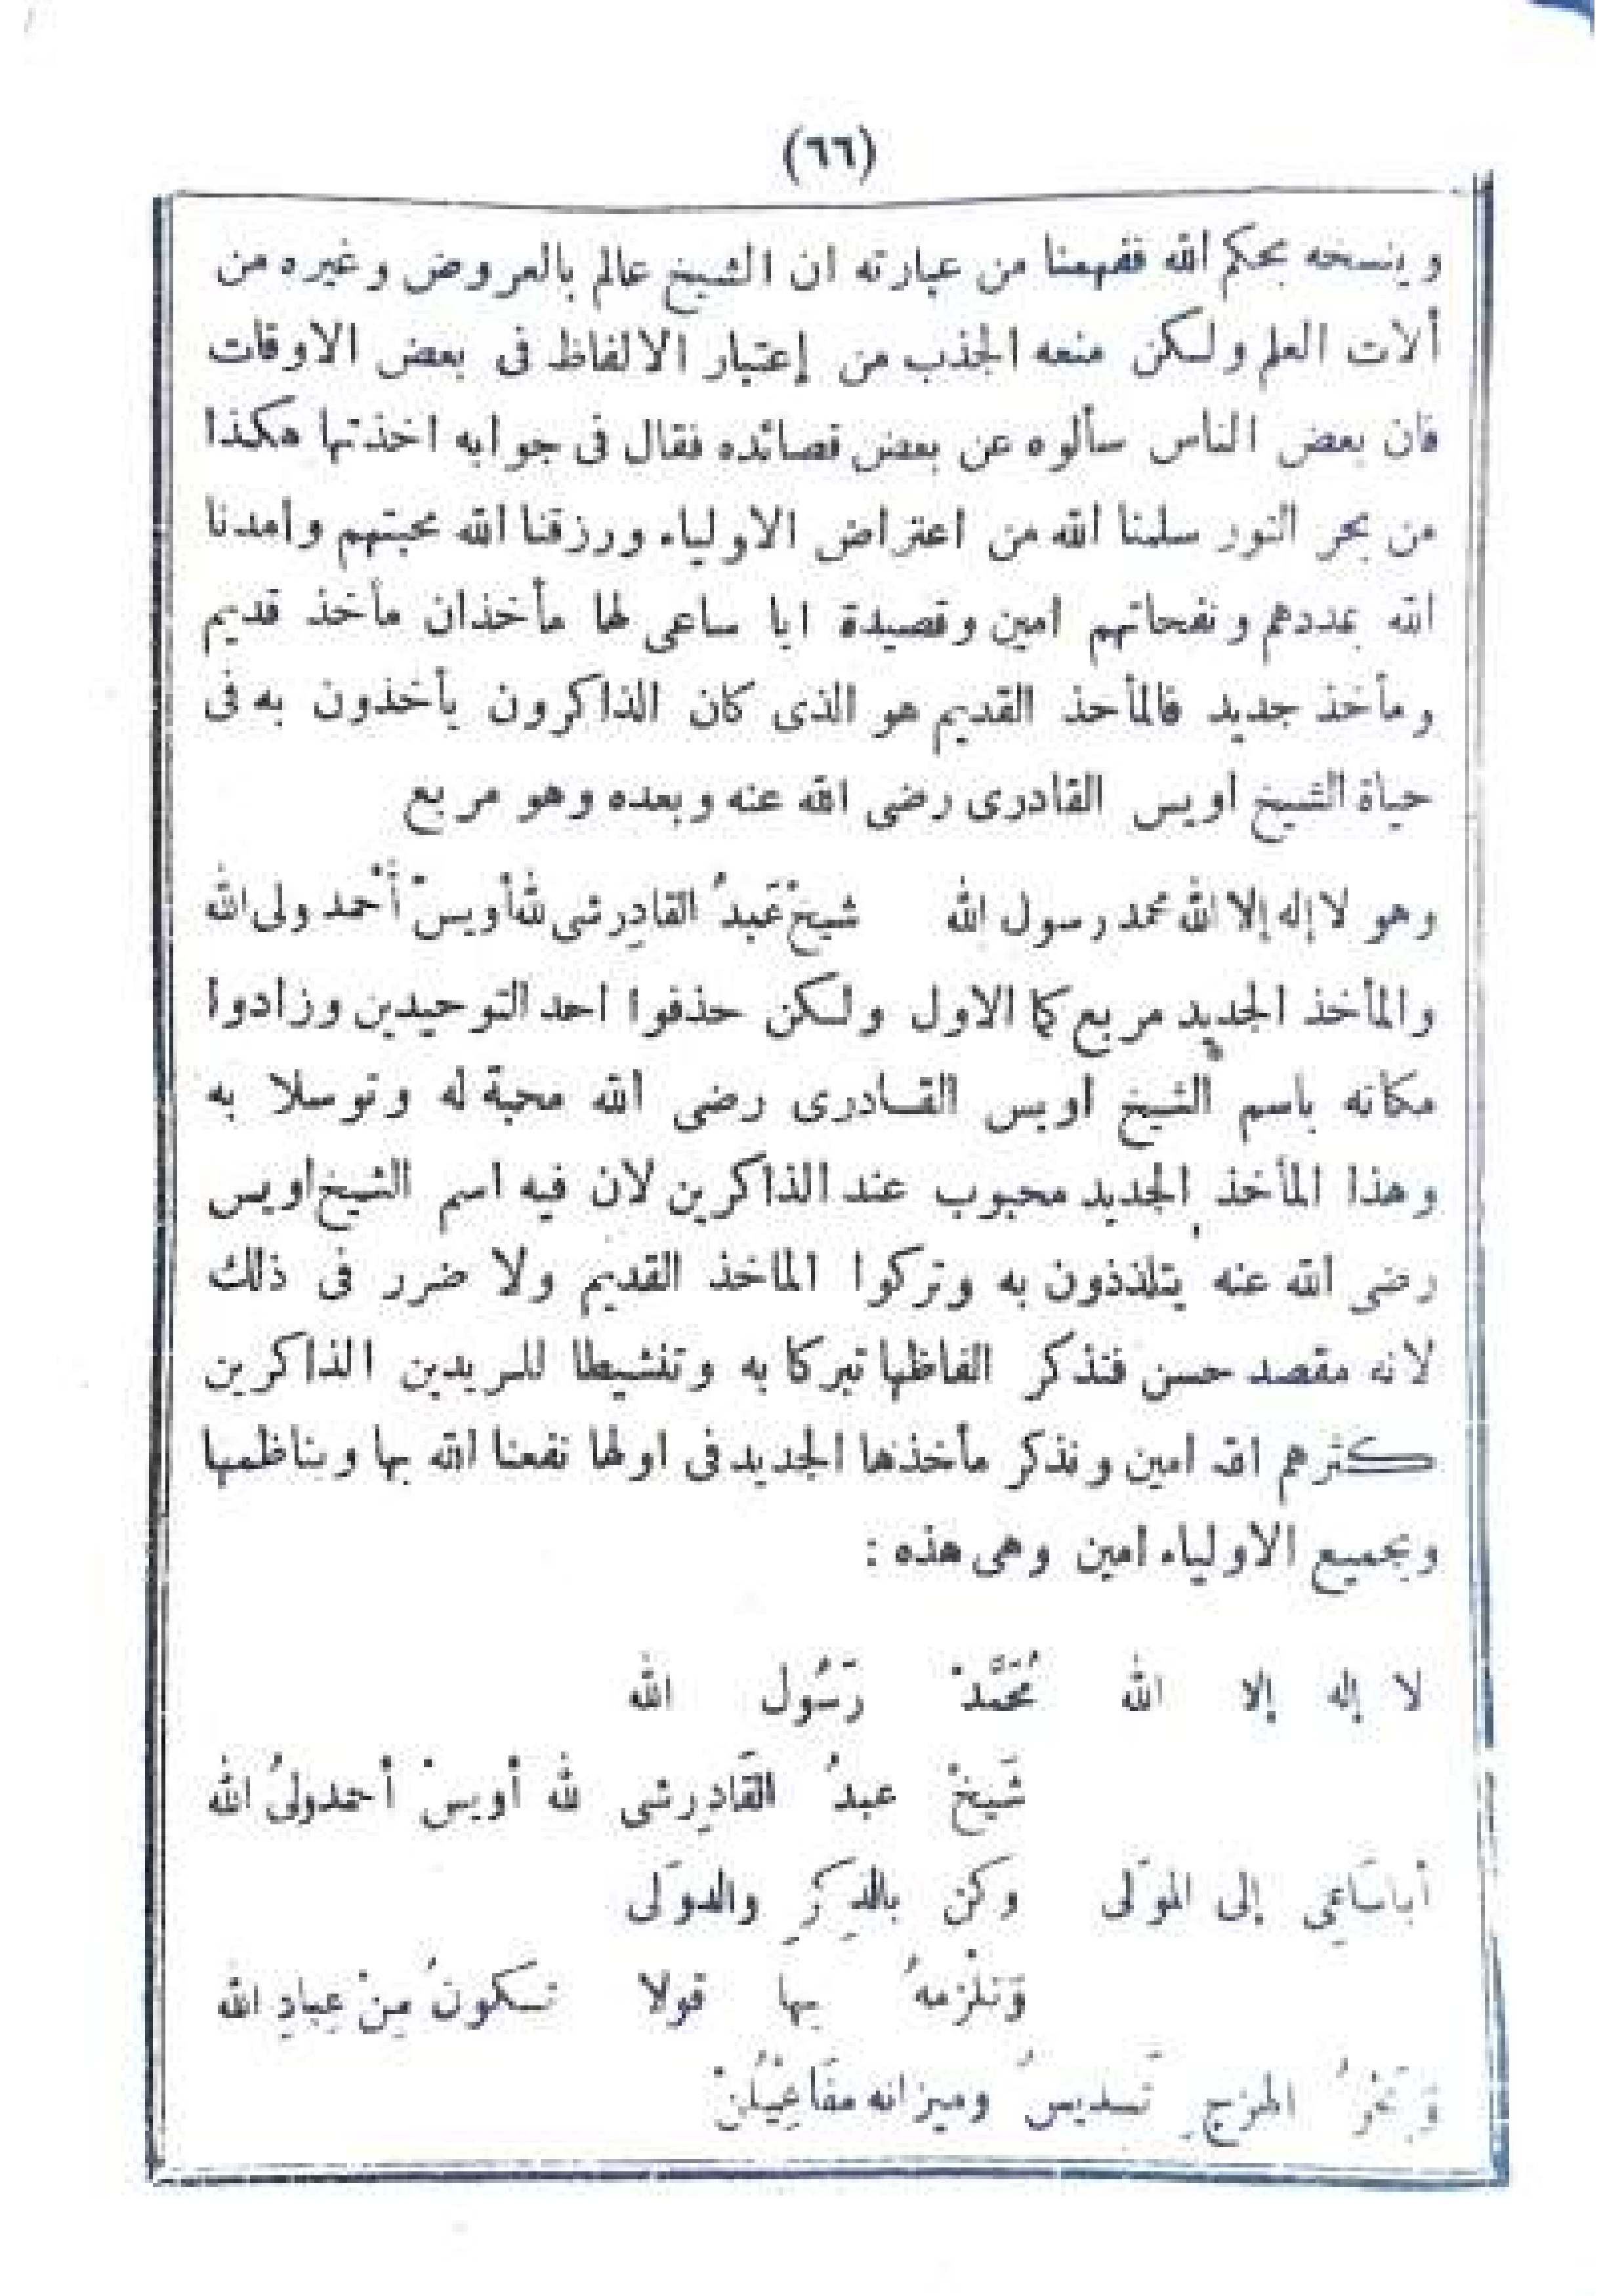 (٦٦)
وينسخه بحكم الله ففهمنا من عبارته ان الشيخ عالم بالعروض وغيره من
ألات العلم ولكن منعه الجذب من إعتبار الالفاظ فى بعض الاوقات
فان بعض الناس سألوه عن بعض قصائده فقال فى جوابه اخذتها هكذا
من بحر النور سلمنا الله من اعتراض الاولياء ورزقنا الله محبتهم وامدنا
الله بمددهم ونفحاتهم امين وقصيدة ايا ساعى لها مأخذان مأخذ قديم
ومأخذ جديد فالمأخذ القديم هو الذى كان الذاكرون يأخذون به فى
حياة الشيخ اويس القادرى رضى الله عنه وبعده وهو مربع
وهو لا إله إلا الله محمد رسول الله شيخْ عَبدُ القادِر شى لله أويسْ أحْمد ولى الله
والمأخذ الجديد مربع كما الاول ولكن حذفوا احد التوحيدين وزادوا
مكانه باسم الشيخ اويس القادرى رضى الله محبة له وتوسلا به
وهذا المأخذ الجديد محبوب عند الذاكرين لان فيه اسم الشيخ اويس
رضى الله عنه يتلذذون به وتركوا الماخذ القديم ولا ضرر فى ذلك
لانه مقصد حسن فنذكر الفاظها تبركا به وتنشيطا للمريدين الذاكرين
كثرهم الله امين ونذكر مأخذها الجديد فى اولها نفعنا الله بها وبناظمها
وبجميع الاولياء امين وهى هذه :
لا إله إلا الله مُحَمَّدْ رَسُول الله
شَيخْ عبدُ القَادِر شى لله أويسْ أحمد ولىُ الله
أياسَاعِى إلى الموَلى وكن بالذِكرِ والدوَلى
وَتلْزمهُ بها قولا تكونُ مِنْ عِبادِ الله
وَبَحْرُ الهزجِ تَسديسُ وميزانه مفَاعِيْلُنْ